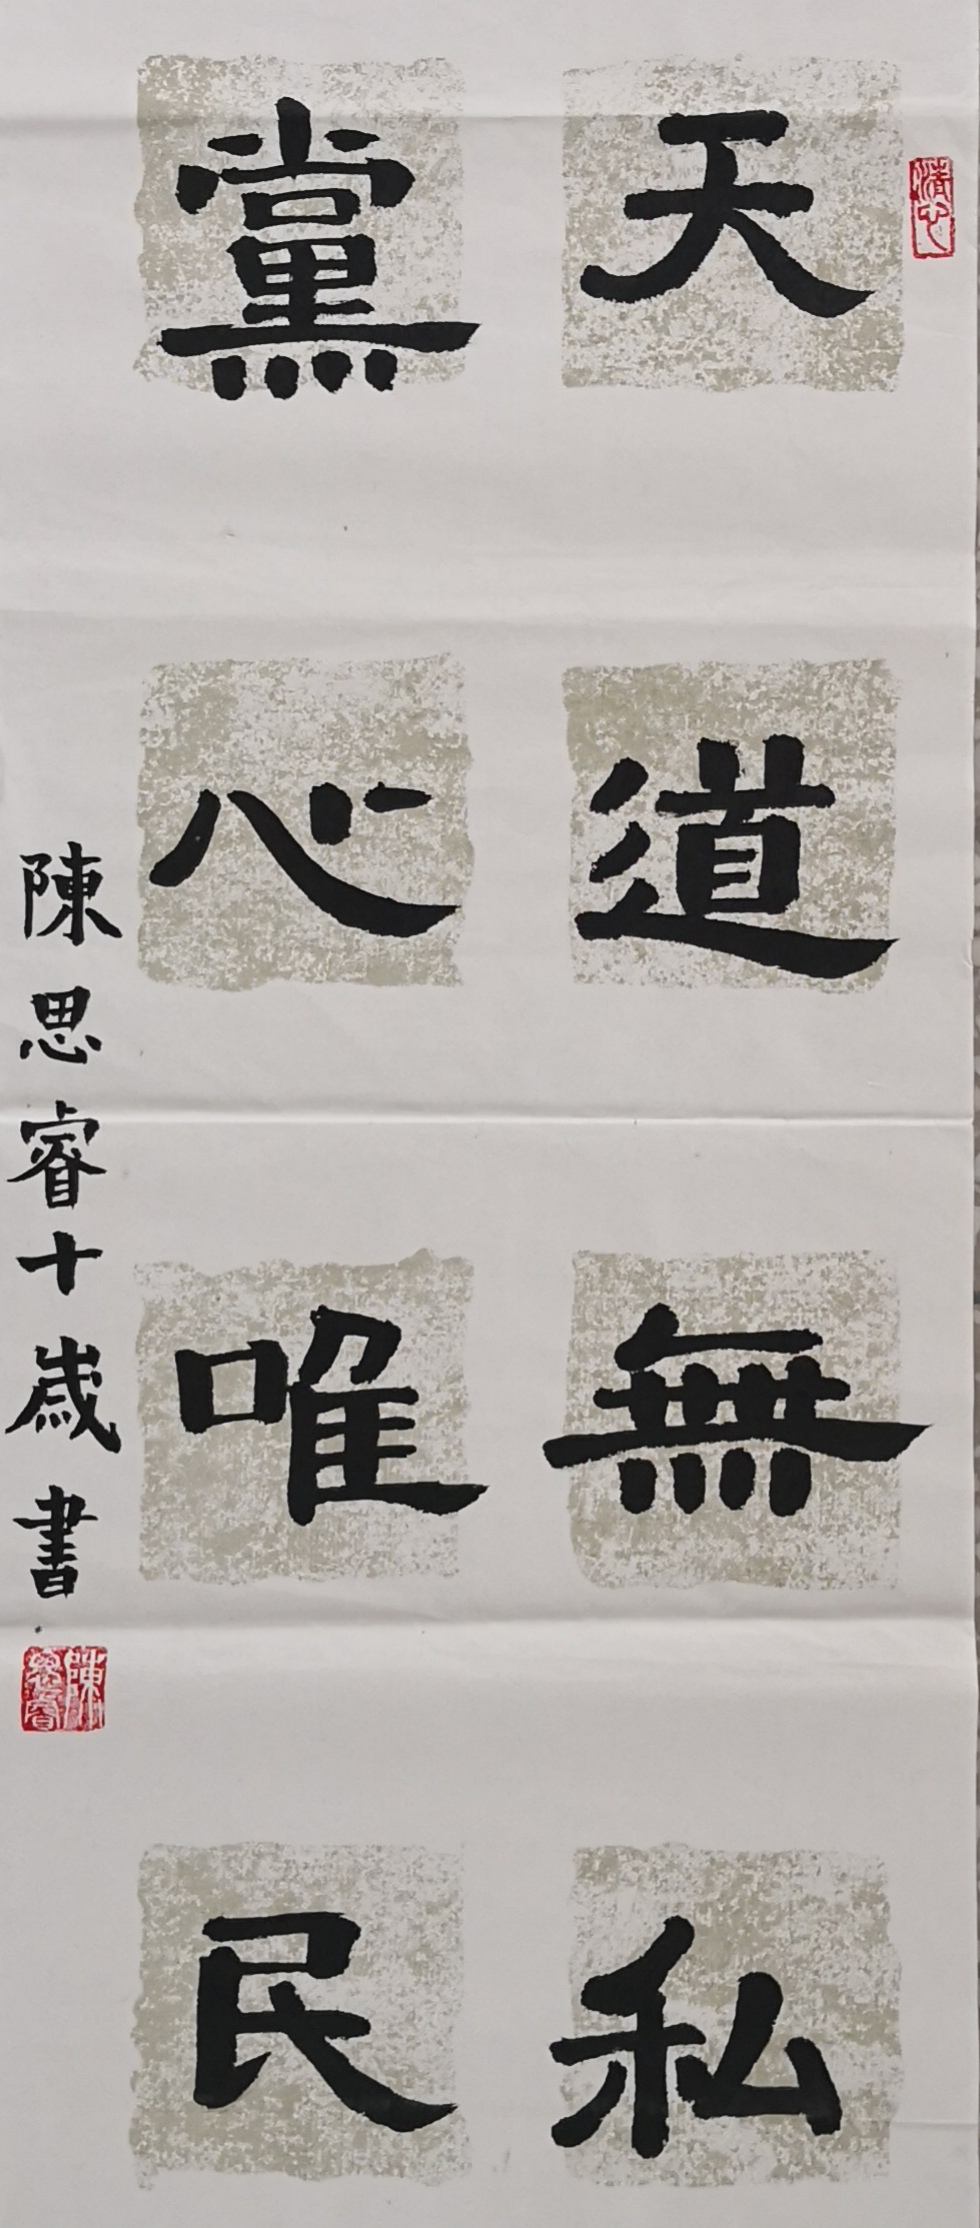 天道無私
黨心唯民
陳思睿十歲書
清心
陳思睿